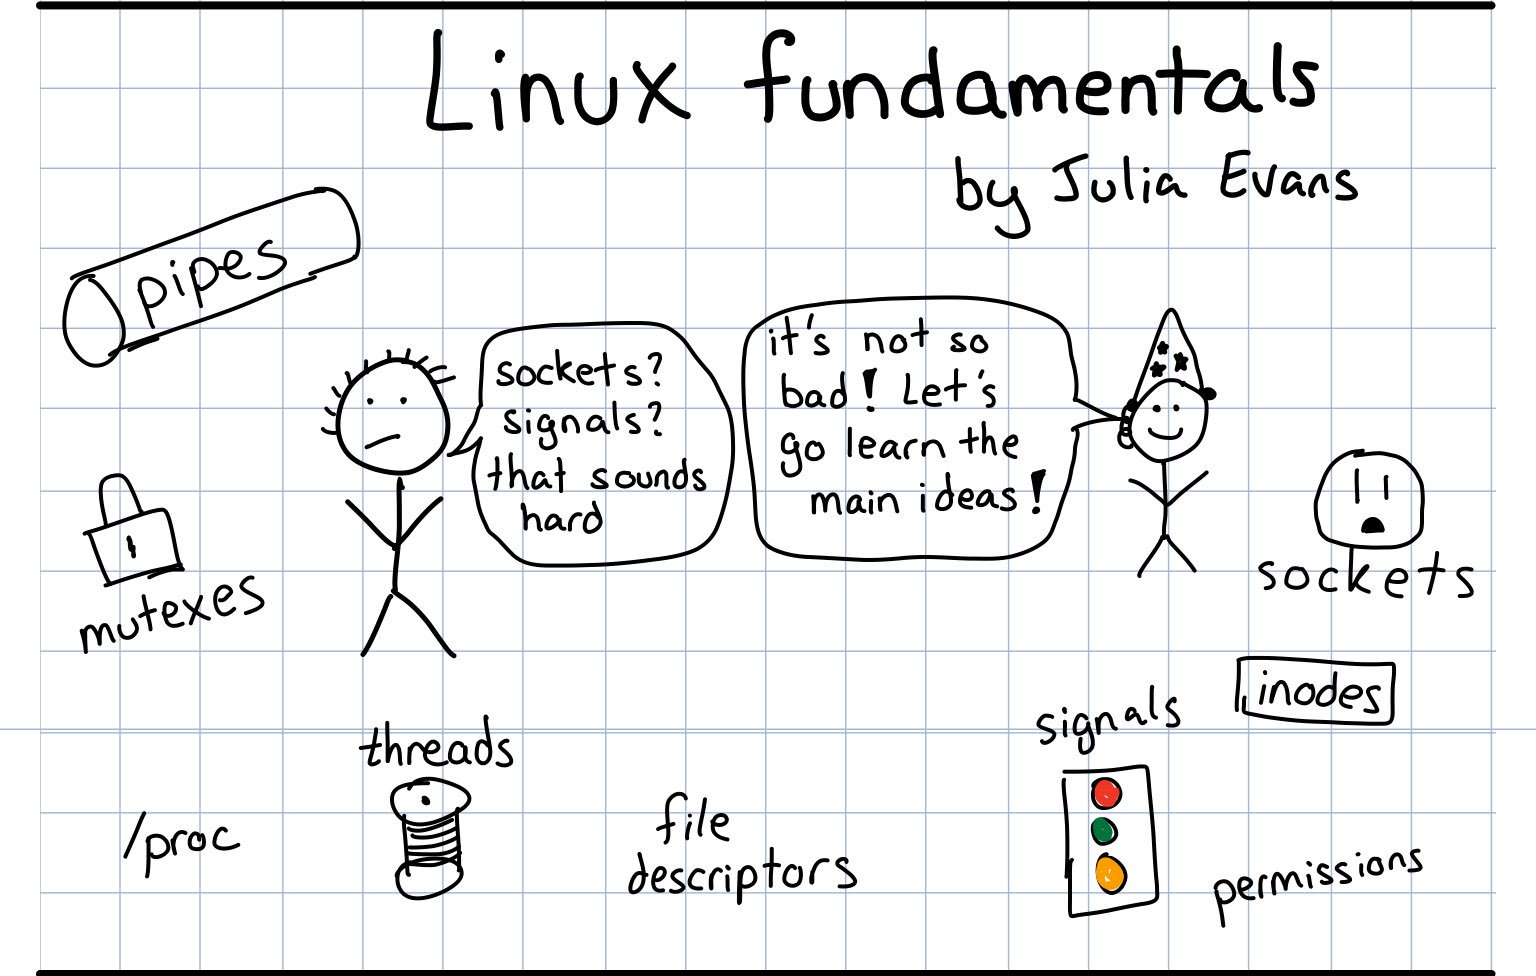 Linux fundamentals
by Julia Evans
pipes
sockets?
signals?
that sounds
hard
it's not so
bad! Let's
go learn the
main ideas!
mutexes
sockets
inodes
threads
signals
/proc
file
descriptors
permissions